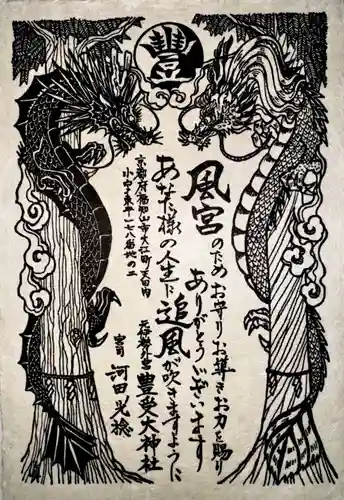 豐
風宮のため お守りお導きお力を賜り
ありがとうございます
あなた様の人生に追風が吹きますように
京都府福知山市大江町天田内
元伊勢外宮 豊受大神社
宮司 河田光稔